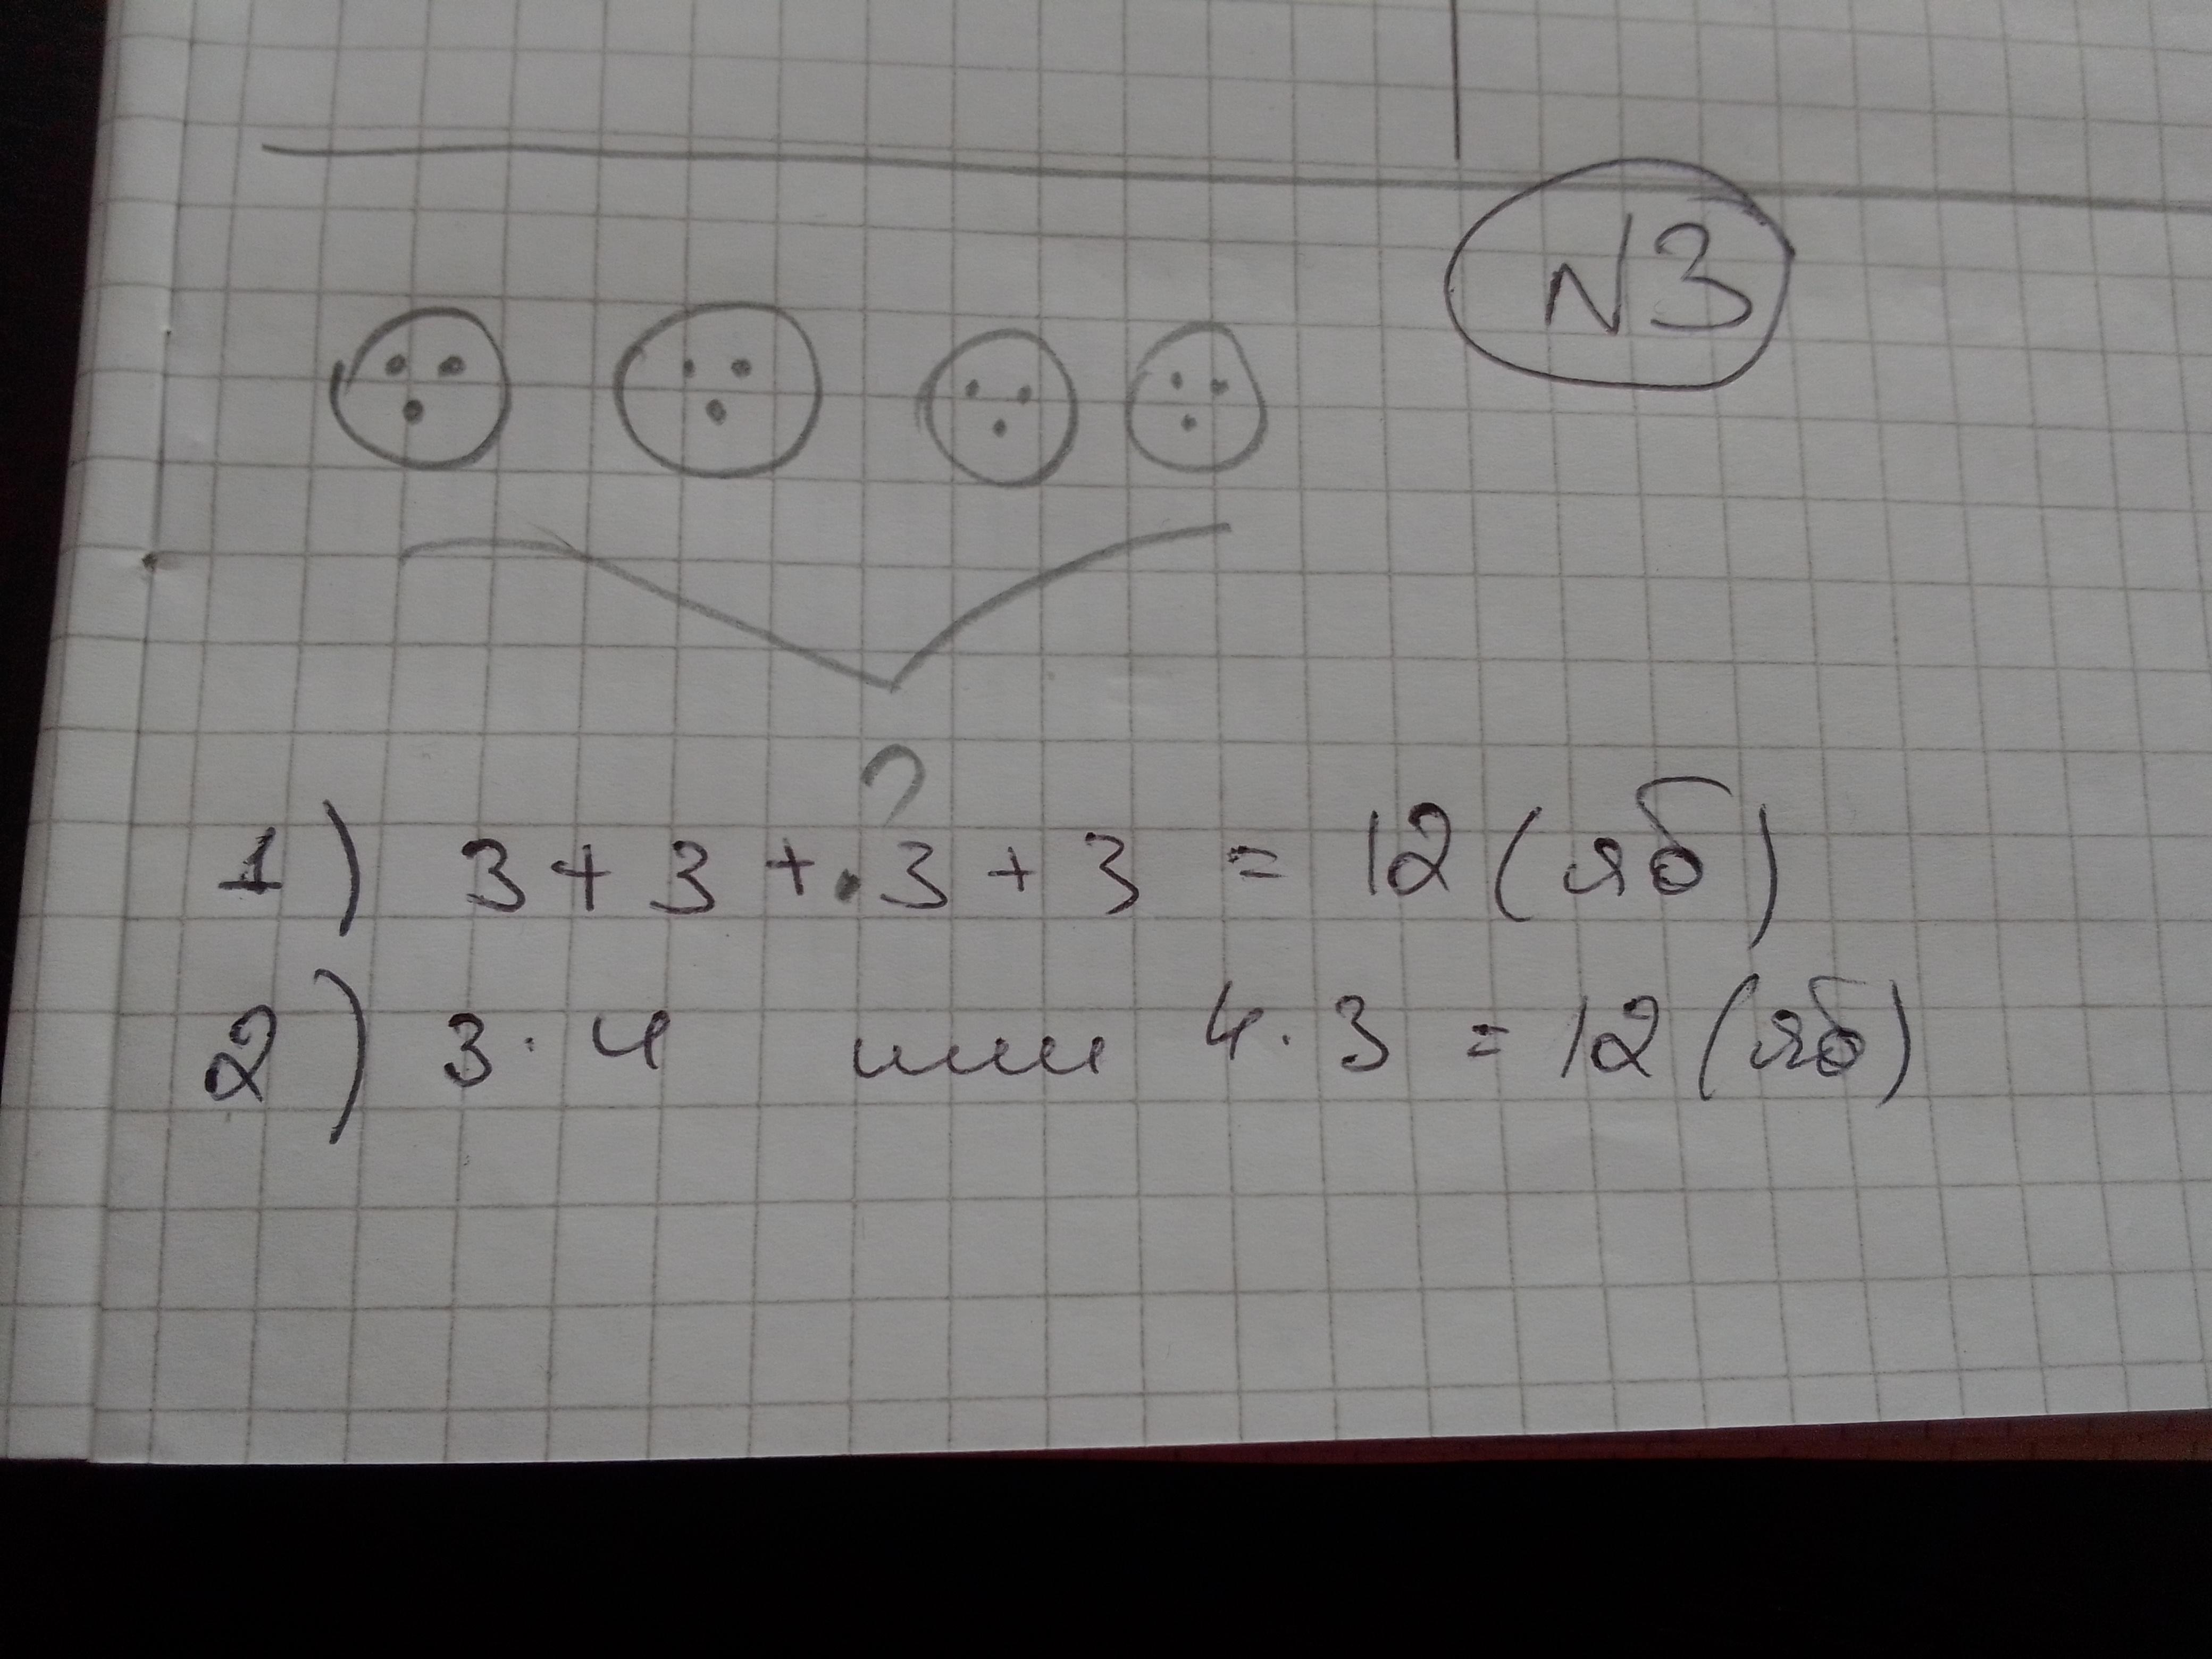 N3
?
1) 3 + 3 + 3 + 3 = 12 (яб)
2) 3 · 4 или 4 · 3 = 12 (яб)